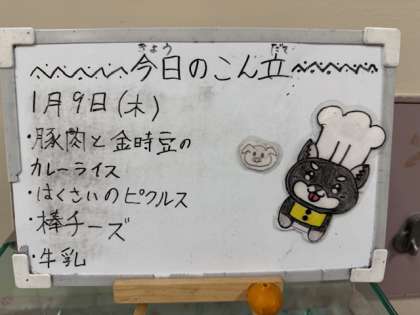 きょう だて
今日のこん立
1月9日(木)
・豚肉と金時豆の
カレーライス
・はくさいのピクルス
・棒チーズ
・牛乳